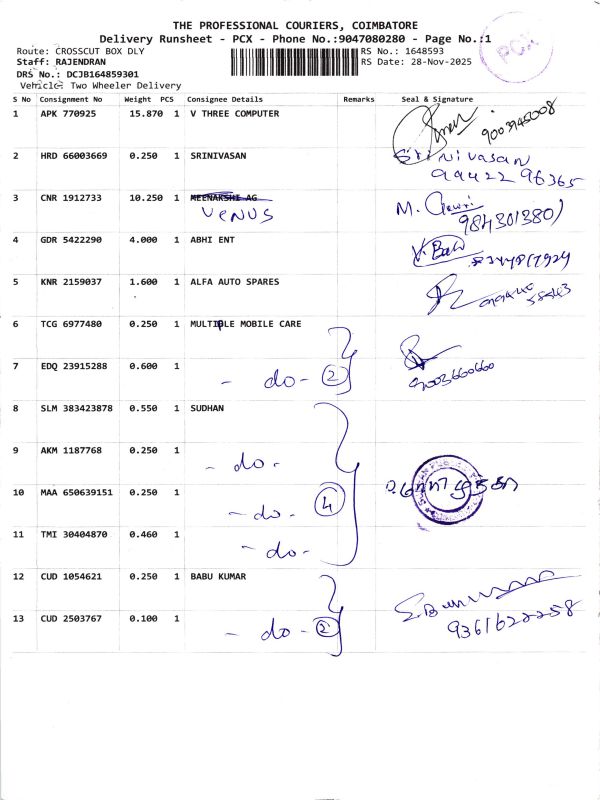 THE PROFESSIONAL COURIERS, COIMBATORE
Delivery Runsheet - PCX - Phone No.:9047080280 - Page No.:1
PCX
Route: CROSSCUT BOX DLY
RS No.: 1648593
Staff: RAJENDRAN
RS Date: 28-Nov-2025
DRS No.: DCJB164859301
Vehicle: Two Wheeler Delivery
S No Consignment No Weight PCS Consignee Details Remarks Seal & Signature
1 APK 770925 15.870 1 V THREE COMPUTER
9003945008
2 HRD 66003669 0.250 1 SRINIVASAN Srinivasan
99422 96365
3 CNR 1912733 10.250 1 MEENAKSHI AG
VENUS M. Gowri
4 GDR 5422290 4.000 1 ABHI ENT
5 KNR 2159037 1.600 1 ALFA AUTO SPARES
6 TCG 6977480 0.250 1 MULTIPLE MOBILE CARE
7 EDQ 23915288 0.600 1
- do - 2
9003660660
8 SLM 383423878 0.550 1 SUDHAN
9 AKM 1187768 0.250 1
- do -
10 MAA 650639151 0.250 1
- do - 4
11 TMI 30404870 0.460 1
- do -
12 CUD 1054621 0.250 1 BABU KUMAR
13 CUD 2503767 0.100 1
- do - 2
9361622258